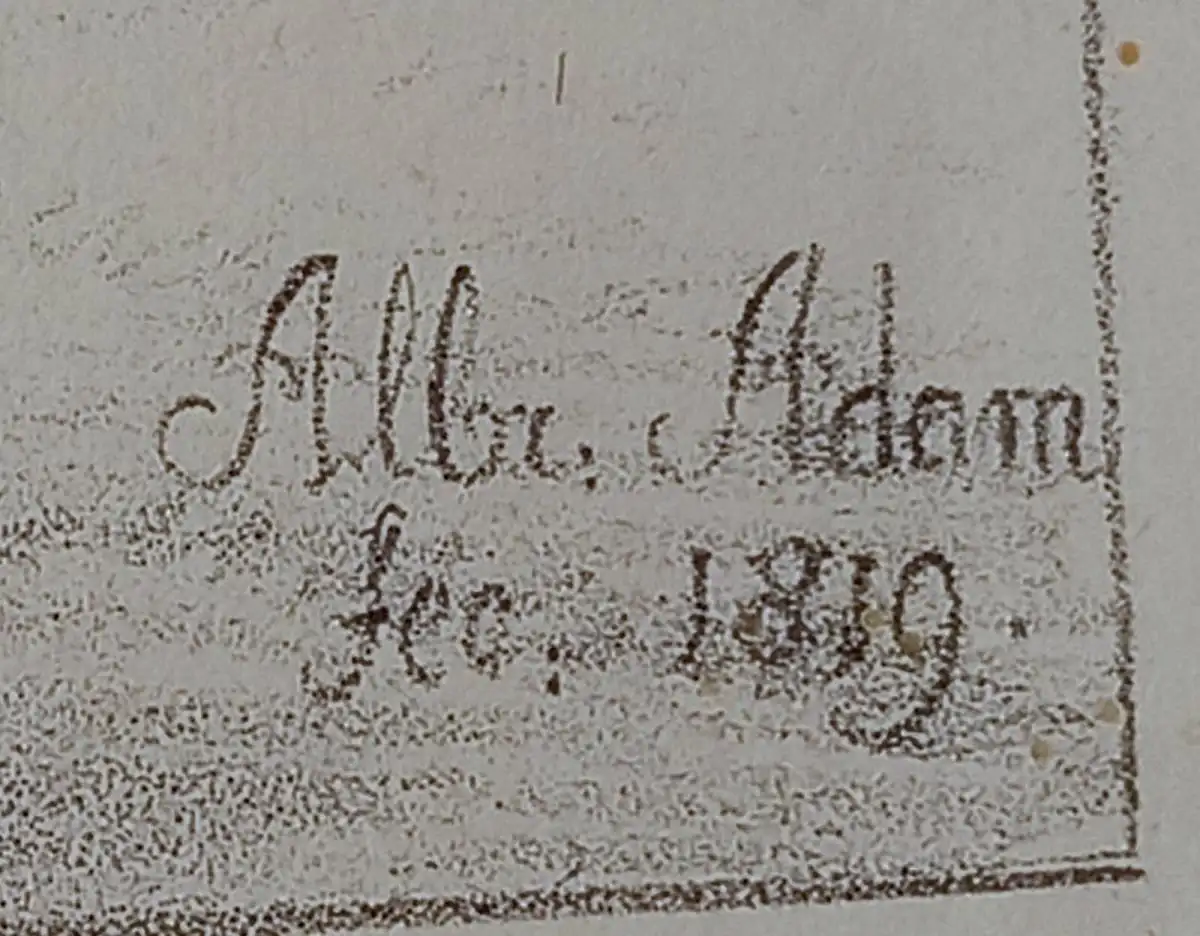 Albr. Adam
fec. 1819.